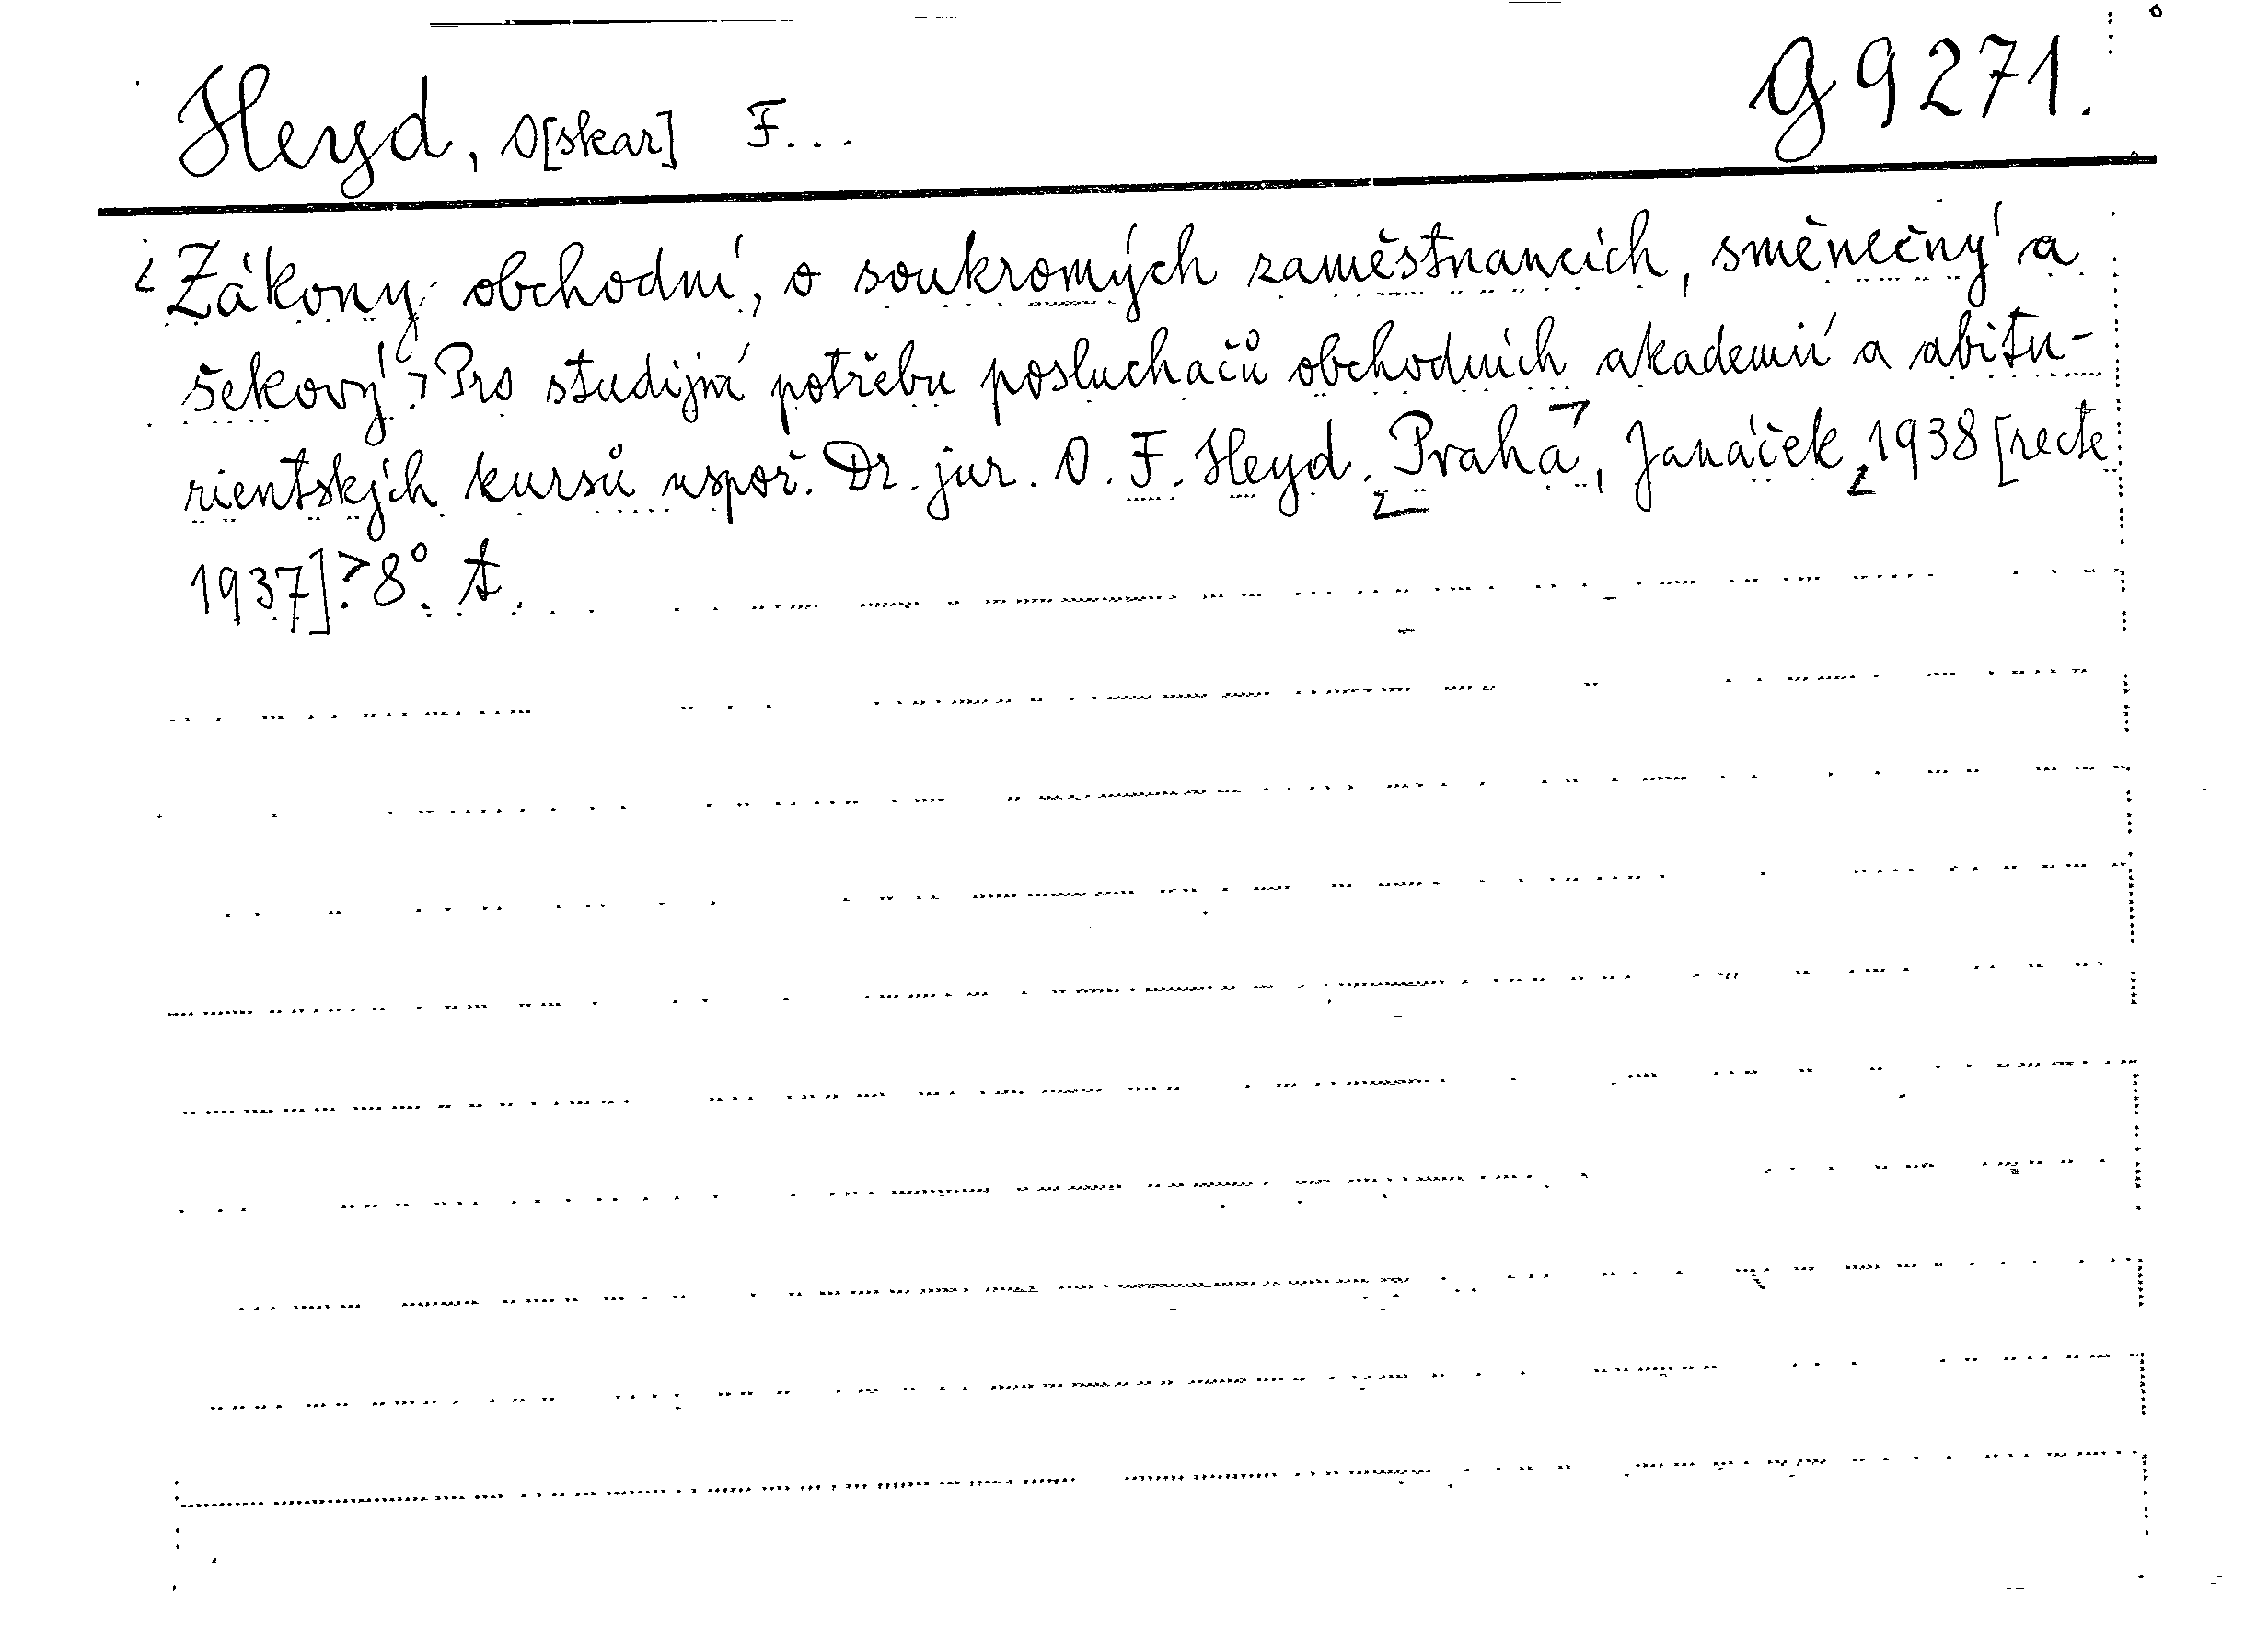 Heyd, O[skar] F... G 9271.
Zákony obchodní, o soukromých zaměstnancích, směnečný a
šekový. Pro studijní potřebu posluchačů obchodních akademií a abitu-
rientských kursů uspoř. Dr. jur. O. F. Heyd. Praha, Janáček, 1938 [recte
1937]. 8°.